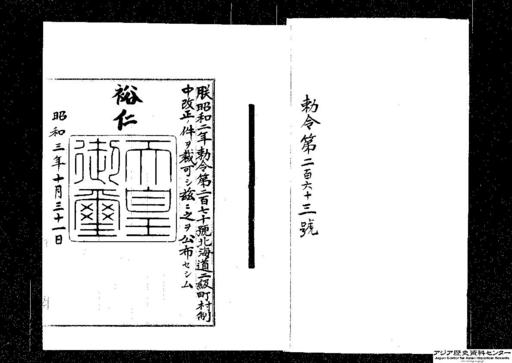 勅令第二百六十三號
朕昭和二年勅令第二百七十號北海道二級町村制
中改正ノ件ヲ裁可シ茲ニ之ヲ公布セシム
裕仁
天皇
御璽
昭和三年十月三十一日
アジア歴史資料センター
Japan Center for Asian Historical Records